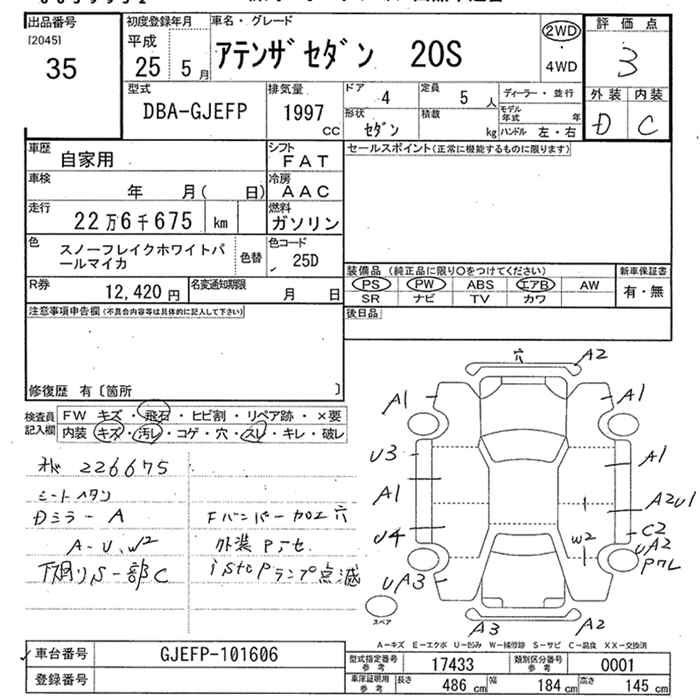 出品番号
[2045]
35
初度登録年月
平成
25 5月
車名・グレード
アテンザセダン 20S
2WD
・
4WD
評価点
3
外装 内装
D C
型式
DBA-GJEFP
排気量
1997
cc
ドア 4
定員 5 人
形状 セダン
積載 kg
ディーラー・並行
モデル年式 年
ハンドル 左・右
車歴 自家用
シフト FAT
車検 年 月( 日)
冷房 AAC
走行 22万6千675 km
燃料 ガソリン
色 スノーフレイクホワイトパールマイカ
色替
色コード 25D
R券 12,420円
名変通知期限 月 日
セールスポイント(正常に機能するものに限ります)
装備品 (純正品に限り○をつけてください)
PS PW ABS エアB AW
SR ナビ TV カワ
新車保証書
有・無
後日品
注意事項申告欄(不具合内容等は具体的に記入して下さい)
修復歴 有〔箇所 〕
検査員記入欄
FW キズ・飛石・ヒビ割・リペア跡・×要
内装 キズ・汚レ・コゲ・穴・スレ・キレ・破レ
226675
シートヘタン
Dミラー A
A-U、W2
下廻りS一部C
Fバンパー加工穴
外装Pキセ
istopランプ点滅
穴 A2
A1 A1
U3 A1
A1 A2U1
U4 W2 C2
UA2
Pワレ
UA3
スペア
A3 A2
A-キズ E-エクボ U-凹み W-補修跡 S-サビ C-腐食 XX-交換済
車台番号 GJEFP-101606
登録番号
型式指定番号 参考 17433
類別区分番号 参考 0001
車庫証明用 参考 長さ 486 cm 幅 184 cm 高さ 145 cm